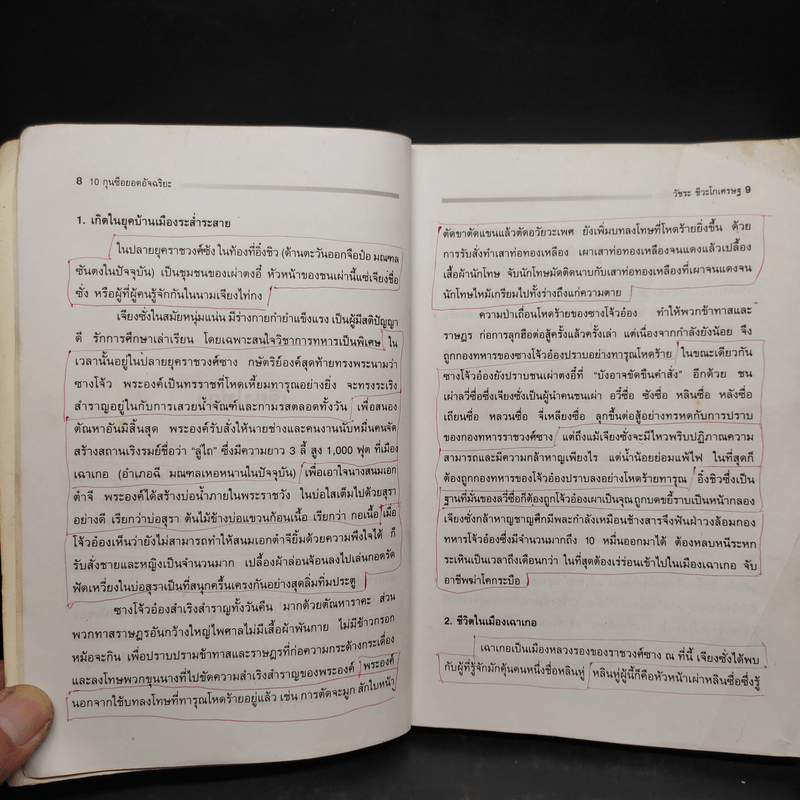 8 10 กุนซือยอดอัจฉริยะ
1. เกิดในยุคบ้านเมืองระส่ำระสาย
ในปลายยุคราชวงศ์ซัง ในท้องที่อิ๋งชิว (ด้านตะวันออกจือป๋อ มณฑล
ซันตงในปัจจุบัน) เป็นชุมชนของเผ่าตงอี๋ หัวหน้าของชนเผ่านี้แซ่เจียงชื่อ
ซั่ง หรือผู้ที่ผู้คนรู้จักกันในนามเจียงไท่กง
เจียงซั่งในสมัยหนุ่มแน่น มีร่างกายกำยำแข็งแรง เป็นผู้มีสติปัญญา
ดี รักการศึกษาเล่าเรียน โดยเฉพาะสนใจวิชาการทหารเป็นพิเศษ ใน
เวลานั้นอยู่ในปลายยุคราชวงศ์ซาง กษัตริย์องค์สุดท้ายทรงพระนามว่า
ซางโจ้ว พระองค์เป็นทรราชที่โหดเหี้ยมทารุณอย่างยิ่ง จะทรงระเริง
สำราญอยู่ในกับการเสวยน้ำจัณฑ์และกามรสตลอดทั้งวัน เพื่อสนอง
ตัณหาอันมิสิ้นสุด พระองค์รับสั่งให้นายช่างและคนงานนับหมื่นคนจัด
สร้างสถานเริงรมย์ชื่อว่า "ลู่ไถ" ซึ่งมีความยาว 3 ลี้ สูง 1,000 ฟุต ที่เมือง
เฉาเกอ (อำเภอฉี มณฑลเหอหนานในปัจจุบัน) เพื่อเอาใจนางสนมเอก
ต๋าจี พระองค์ได้สร้างบ่อน้ำภายในพระราชวัง ในบ่อใสเต็มไปด้วยสุรา
อย่างดี เรียกว่าบ่อสุรา ต้นไม้ข้างบ่อแขวนก้อนเนื้อ เรียกว่า กอเนื้อ เมื่อ
โจ้วอ๋องเห็นว่ายังไม่สามารถทำให้สนมเอกต๋าจียิ้มด้วยความพึงใจได้ ก็
รับสั่งชายและหญิงเป็นจำนวนมาก เปลื้องผ้าล่อนจ้อนลงไปเล่นกอดรัด
ฟัดเหวี่ยงในบ่อสุราเป็นที่สนุกครื้นเครงกันอย่างสุดลิ่มทิ่มประตู
ซางโจ้วอ๋องสำเริงสำราญทั้งวันคืน มากด้วยตัณหาราคะ ส่วน
พวกทาสราษฎรอันกว้างใหญ่ไพศาลไม่มีเสื้อผ้าพันกาย ไม่มีข้าวกรอก
หม้อจะกิน เพื่อปราบปรามข้าทาสและราษฎรที่ก่อความกระด้างกระเดื่อง
และลงโทษพวกขุนนางที่ไปขัดความสำเริงสำราญของพระองค์ พระองค์
นอกจากใช้บทลงโทษที่ทารุณโหดร้ายอยู่แล้ว เช่น การตัดจะมูก สักใบหน้า
วัชระ ชีวะโกเศรษฐ 9
ตัดขาตัดแขนแล้วตัดอวัยวะเพศ ยังเพิ่มบทลงโทษที่โหดร้ายยิ่งขึ้น ด้วย
การรับสั่งทำเสาท่อทองเหลือง เผาเสาท่อทองเหลืองจนแดงแล้วเปลื้อง
เสื้อผ้านักโทษ จับนักโทษมัดติดนาบกับเสาท่อทองเหลืองที่เผาจนแดงจน
นักโทษไหม้เกรียมไปทั้งร่างถึงแก่ความตาย
ความป่าเถื่อนโหดร้ายของซางโจ้วอ๋อง ทำให้พวกข้าทาสและ
ราษฎร ก่อการลุกฮือต่อสู้ครั้งแล้วครั้งเล่า แต่เนื่องจากกำลังยังน้อย จึง
ถูกกองทหารของซางโจ้วอ๋องปราบอย่างทารุณโหดร้าย ในขณะเดียวกัน
ซางโจ้วอ๋องยังปราบชนเผ่าตงอี๋ที่ "บังอาจขัดขืนคำสั่ง" อีกด้วย ชน
เผ่าลวี่ซื่อซึ่งเจียงซั่งเป็นผู้นำคนชนเผ่า อวี๋ซื่อ ซังซื่อ หลินซื่อ หลังซื่อ
เถียนซื่อ หลวนซื่อ จี่เหลียงซื่อ ลุกขึ้นต่อสู้อย่างทรหดกับการปราบ
ของกองทหารราชวงศ์ซาง แต่ถึงแม้เจียงซั่งจะมีไหวพริบปฏิภาณความ
สามารถและมีความกล้าหาญเพียงไร แต่น้ำน้อยย่อมแพ้ไฟ ในที่สุดก็
ต้องถูกกองทหารของโจ้วอ๋องปราบลงอย่างโหดร้ายทารุณ อิ๋งชิวซึ่งเป็น
ฐานที่มั่นของลวี่ซื่อก็ต้องถูกโจ้วอ๋องเผาเป็นจุณถูกบดขยี้ราบเป็นหน้ากลอง
เจียงซั่งกล้าหาญชาญศึกมีพละกำลังเหมือนช้างสารจึงฟันฝ่าวงล้อมกอง
ทหารโจ้วอ๋องซึ่งมีจำนวนมากถึง 10 หมื่นออกมาได้ ต้องหลบหนีระหก
ระเหินเป็นเวลาถึงเดือนกว่า ในที่สุดต้องเร่ร่อนเข้าไปในเมืองเฉาเกอ จับ
อาชีพฆ่าโคกระบือ
2. ชีวิตในเมืองเฉาเกอ
เฉาเกอเป็นเมืองหลวงรองของราชวงศ์ซาง ณ ที่นี้ เจียงซั่งได้พบ
กับผู้ที่รู้จักมักคุ้นคนหนึ่งชื่อหลินหู่ หลินหู่ผู้นี้ก็คือหัวหน้าเผ่าหลินซื่อซึ่งรู้